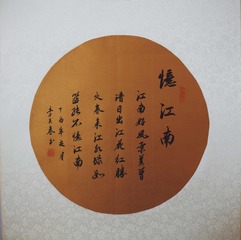 憶江南
江南好風景舊曾
諳日出江花紅勝
火春来江水綠如
藍能不憶江南
丁酉年五月